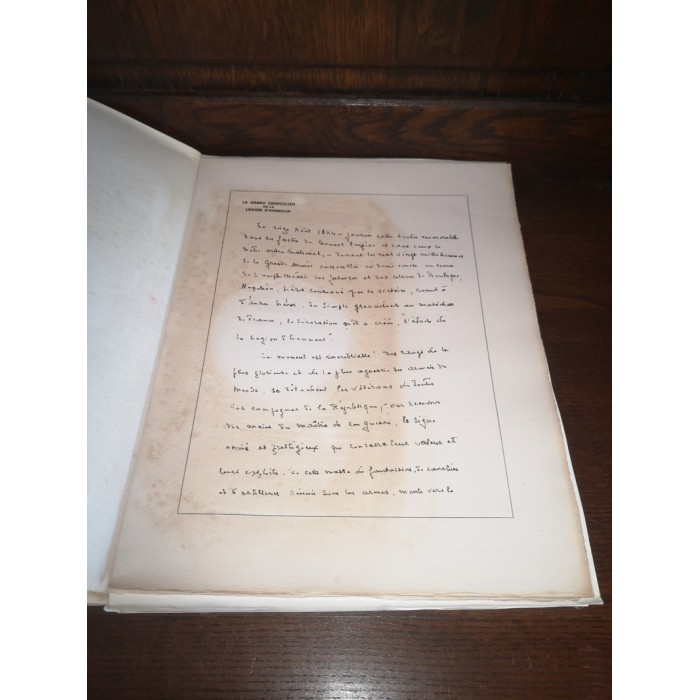 LE GRAND CHANCELIER
DE LA
LEGION D'HONNEUR
Le seize Août 1804 — journée entre toutes mémorable
dans les fastes du Premier Empire et dans ceux de
notre ordre national, — devant les cent vingt mille hommes
de la Grande Armée rassemblés en demi-cercle au
de l'amphithéâtre des falaises et des collines de Boulogne,
Napoléon, héros couronné par la victoire, remet à
d'autres héros, du simple grenadier au maréchal
de France, la décoration qu'il a créée, "l'étoile de
la Légion d'Honneur".
Le moment est inoubliable. Des rangs de la
plus glorieuse et de la plus aguerrie des armées du
Monde, se détachent les vétérans de toutes
les campagnes de la République, pour recevoir
des mains du maître de la guerre, le signe
envié et prestigieux qui consacre leur valeur et
leurs exploits. De cette masse de fantassins, de cavaliers
et d'artilleurs réunis sous les armes, monte vers le